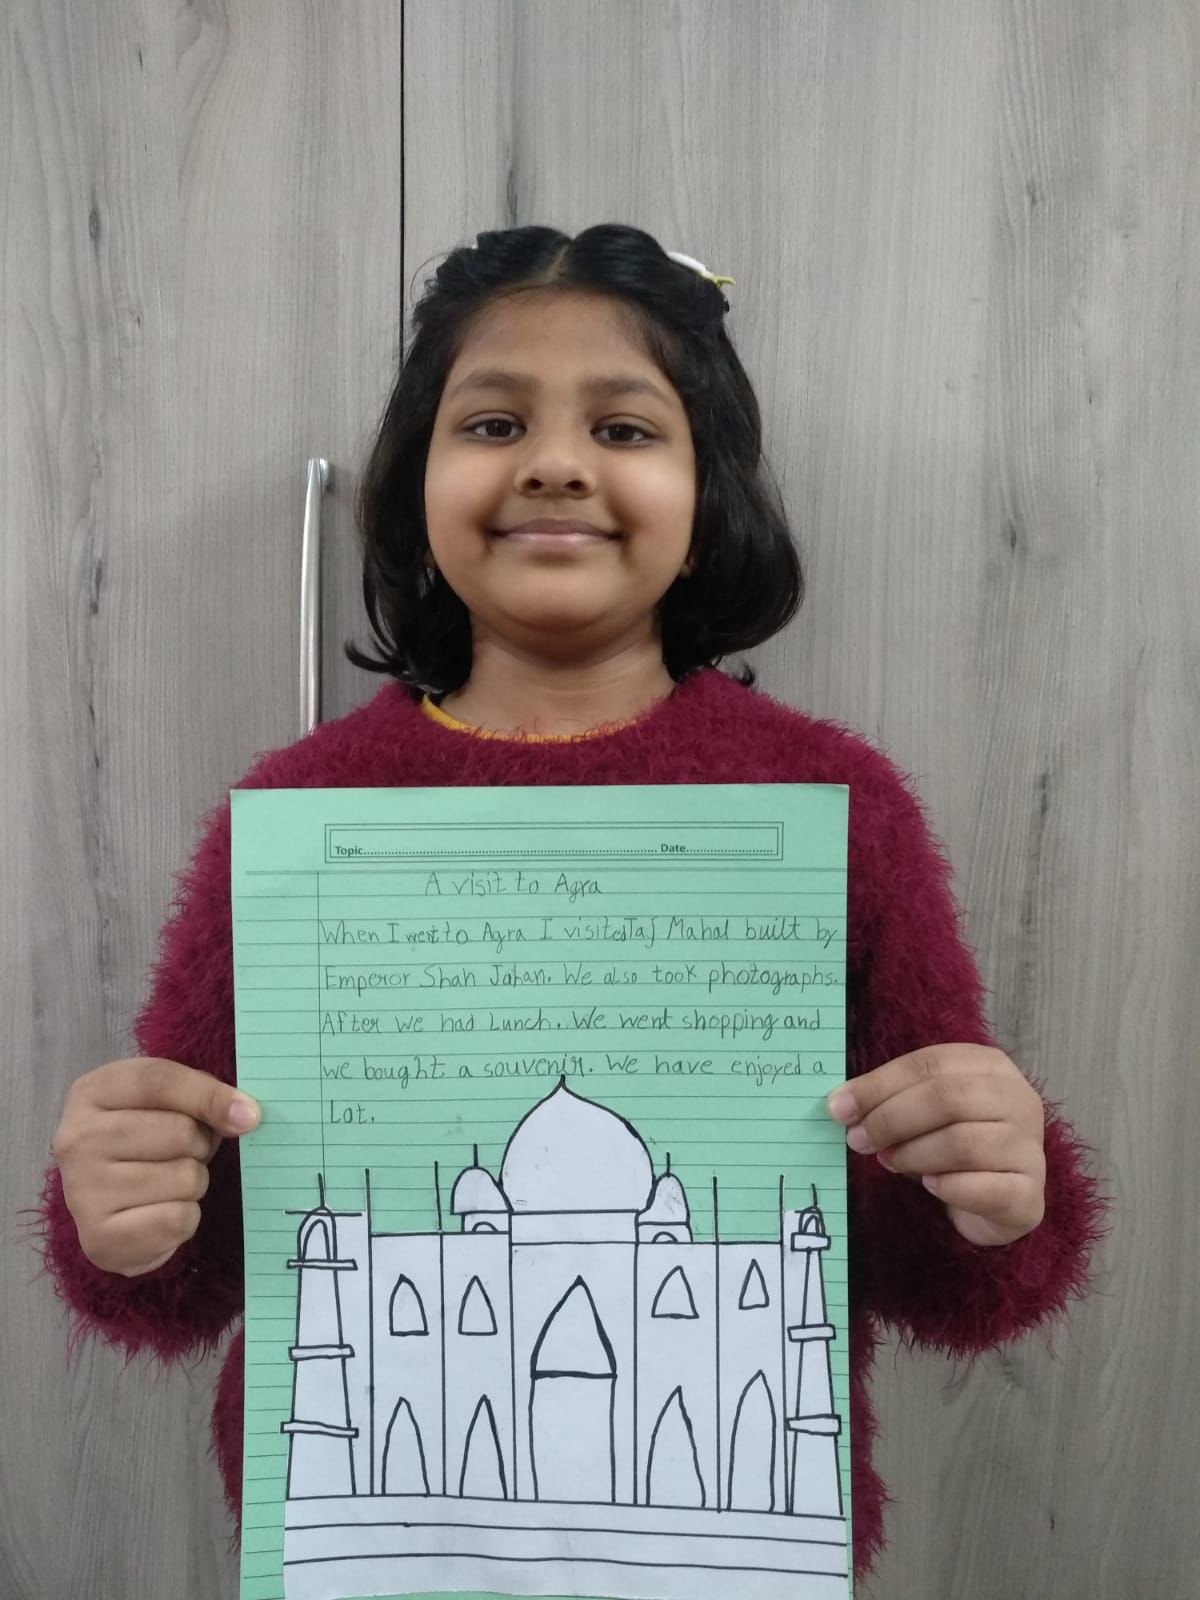 Topic........................................................................................ Date..........................
A visit to Agra
When I went to Agra I visited Taj Mahal built by
Emperor Shah Jahan. We also took photographs.
After we had Lunch. We went shopping and
we bought a souvenir. We have enjoyed a
Lot.